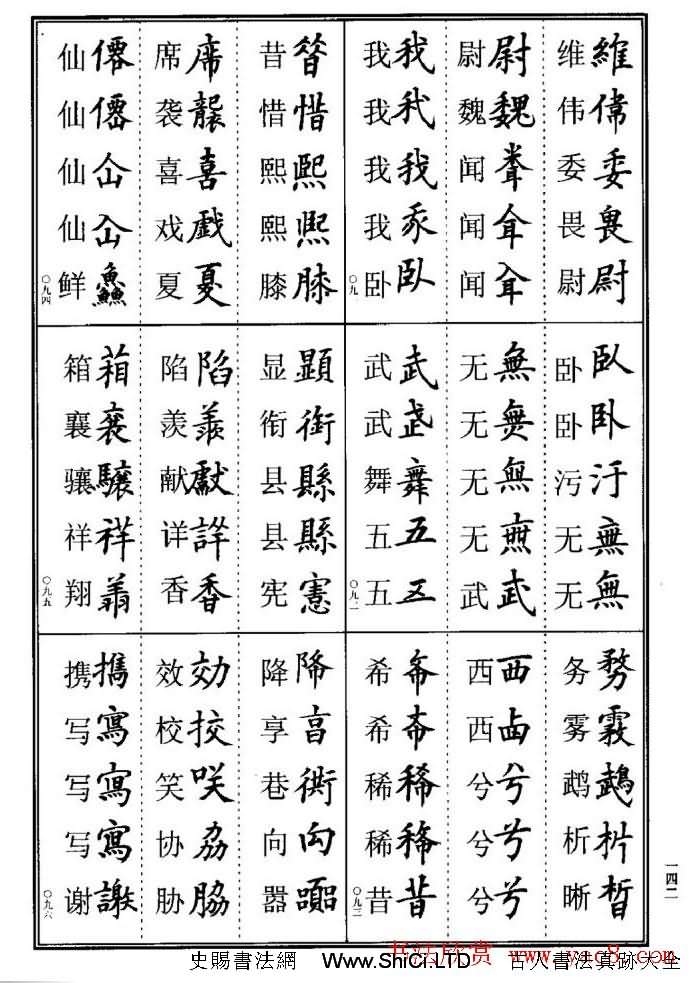 維偉委畏尉
维伟委畏尉
尉魏
尉魏闻闻闻
我我我臥
我我我我卧
○九一
臥卧汙無無
卧卧污无无
無無無無武
无无无无武
武武舞五五
武武舞五五
○九二
務霧鵡析晳
务雾鹉析晰
西卤兮兮兮
西西兮兮兮
稀昔
希希稀稀昔
○九三
昔惜熙熙膝
昔惜熙熙膝
席襲喜戲夏
席袭喜戏夏
僊僊仚仚鱻
仙仙仙仙鲜
○九四
顯銜縣縣憲
显衔县县宪
陷羨獻詳香
陷羡献详香
箱襄驤祥翔
箱襄骧祥翔
○九五
降亯衖向嚚
降享巷向嚣
効挍咲劦脇
效校笑协胁
攜寫寫寫謝
携写写写谢
○九六
一四二
书法欣赏 www.yac8.com
史賜書法網 Www.ShiCi.LTD 古人書法真跡大全